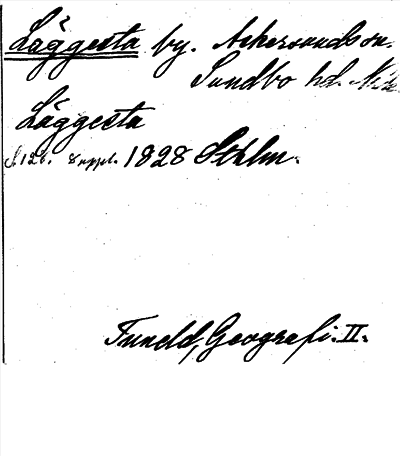 Läggesta by. Åkersunds sn.
Sundbo hd.
Läggesta
S. 126. Suppl. 1828 Sthlm.
Tuneld, Geografi. II.